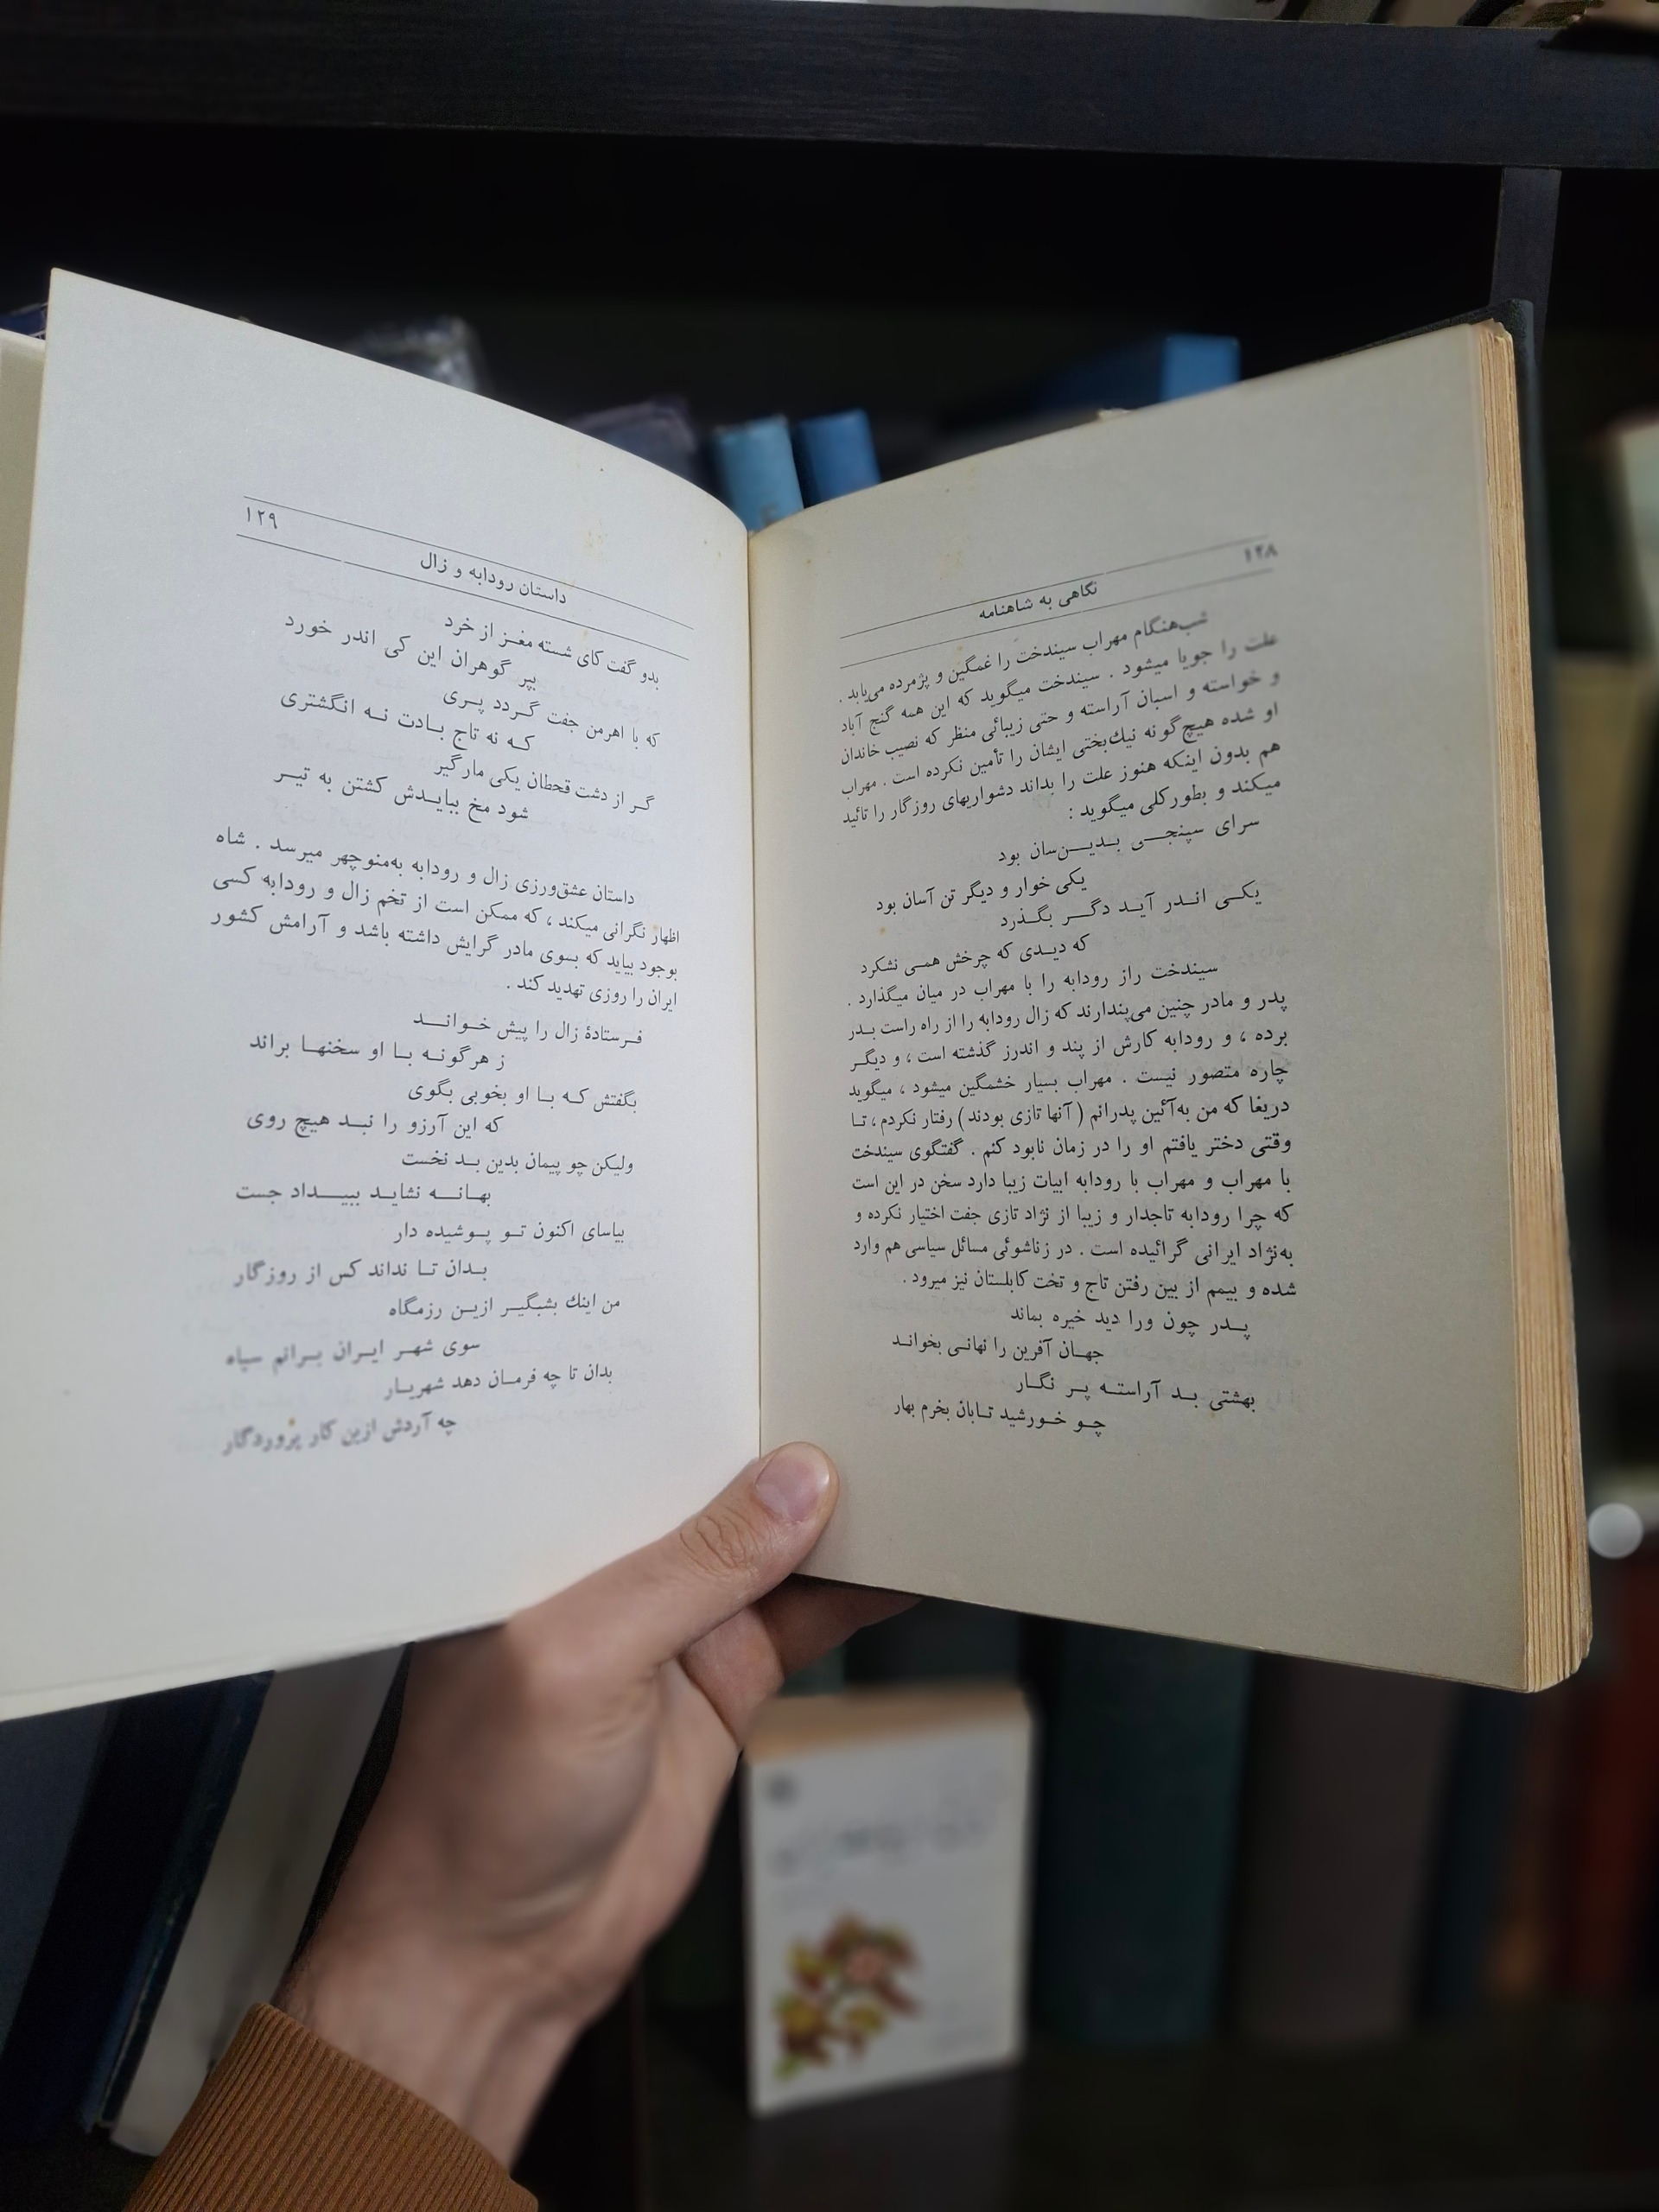 ۱۲۸
نگاهی به شاهنامه
شب‌هنگام مهراب سیندخت را غمگین و پژمرده می‌یابد .
علت را جویا میشود . سیندخت میگوید که این همه گنج آباد
و خواسته و اسبان آراسته و حتی زیبائی منظر که نصیب خاندان
او شده هیچ‌گونه نیك‌بختی ایشان را تأمین نکرده است . مهراب
هم بدون اینکه هنوز علت را بداند دشواریهای روزگار را تائید
میکند و بطورکلی میگوید :
سرای سپنجـی بـدیـن‌سان بود
یکی خوار و دیگر تن آسان بود
یکـی انـدر آیـد دگـر بگـذرد
که دیـدی که چرخش همـی نشکرد
سیندخت راز رودابه را با مهراب در میان میگذارد .
پدر و مادر چنین می‌پندارند که زال رودابه را از راه راست بـدر
برده ، و رودابه کارش از پند و اندرز گذشته است ، و دیگـر
چاره متصور نیست . مهراب بسیار خشمگین میشود ، میگوید
دریغا که من به‌آئین پدرانم ( آنها تازی بودند ) رفتار نکردم ، تـا
وقتی دختر یافتم او را در زمان نابود کنم . گفتگوی سیندخت
با مهراب و مهراب با رودابه ابیات زیبا دارد سخن در این است
که چرا رودابه تاجدار و زیبا از نژاد تازی جفت اختیار نکرده و
به‌نژاد ایرانی گرائیده است . در زناشوئی مسائل سیاسی هم وارد
شده و بیمم از بین رفتن تاج و تخت کابلستان نیز میرود .
پـدر چون ورا دید خیره بماند
جهـان آفرین را نهانـی بخوانـد
بهشتی بـد آراستـه پـر نگـار
چـو خـورشید تـابان بخرم بهار
۱۲۹
داستان رودابه و زال
بدو گفت کای شسته مغـز از خرد
بپر گوهران این کی اندر خورد
که با اهرمن جفت گـردد پـری
کـه نه تاج بـادت نـه انگشتری
گـر از دشت قحطان یکی مارگیر
شود مخ ببایـدش کشتن به تیـر
داستان عشق‌ورزی زال و رودابه به‌منوچهر میرسد . شاه
اظهار نگرانی میکند ، که ممکن است از تخم زال و رودابه کسی
بوجود بیاید که بسوی مادر گرایش داشته باشد و آرامش کشور
ایران را روزی تهدید کند .
فـرستادهٔ زال را پیش خـوانـد
ز هرگونـه بـا او سخنهـا براند
بگفتش کـه بـا او بخوبی بگوی
که این آرزو را نبـد هیچ روی
ولیکن چو پیمان بدین بـد نخست
بهـانـه نشایـد ببیـداد جست
بیاسای اکنون تـو پـوشیده دار
بـدان تـا نداند کس از روزگار
من اینك بشبگیـر ازیـن رزمگاه
سوی شهـر ایـران بـرانم سپاه
بدان تا چه فرمـان دهد شهریـار
چه آردش ازین کار پروردگار